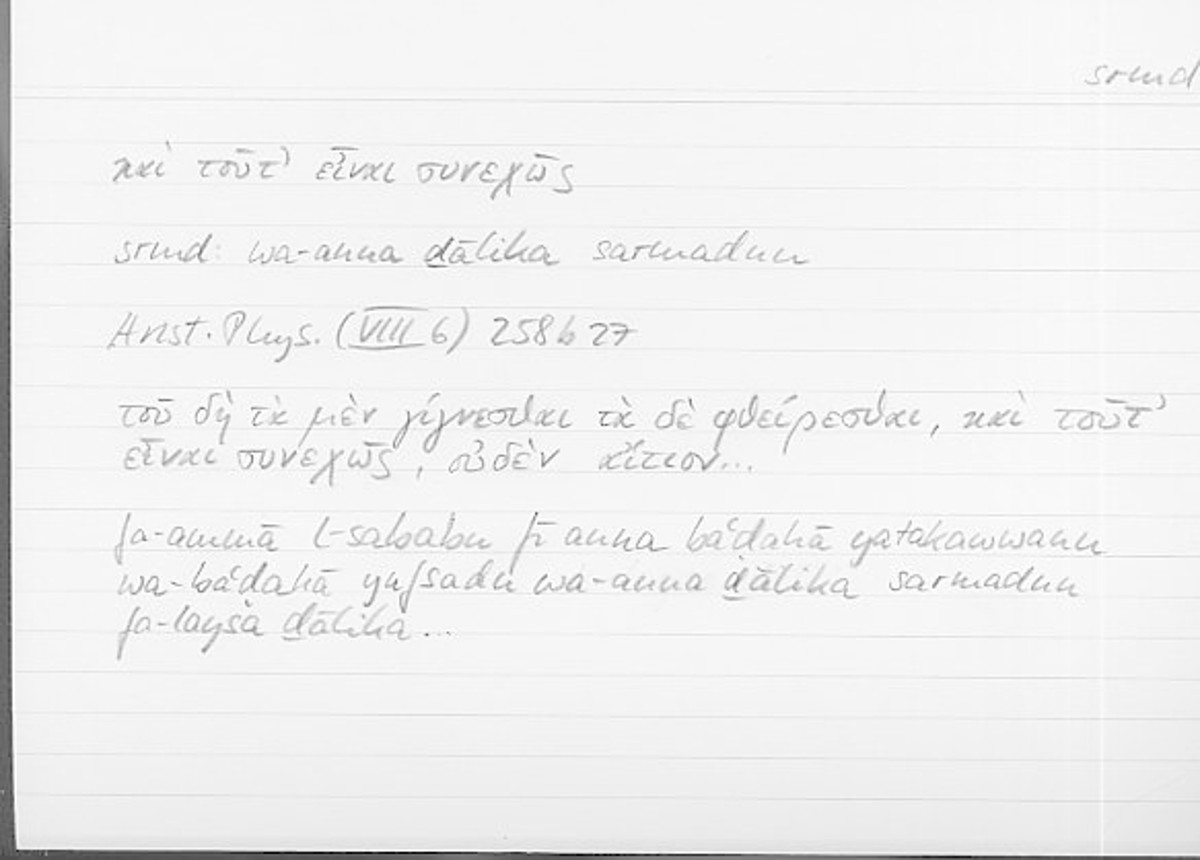 srmd
καὶ τοῦτ' εἶναι συνεχῶς
srmd: wa-anna ḏālika sarmadun
Arist. Phys. (VIII 6) 258b27
τοῦ δὴ τὰ μὲν γίγνεσθαι τὰ δὲ φθείρεσθαι, καὶ τοῦτ'
εἶναι συνεχῶς, οὐδὲν αἴτιον...
fa-ammā l-sababu fī anna baʿḍahā yatakawwanu
wa-baʿḍahā yufsadu wa-anna ḏālika sarmadun
fa-laysa ḏālika...